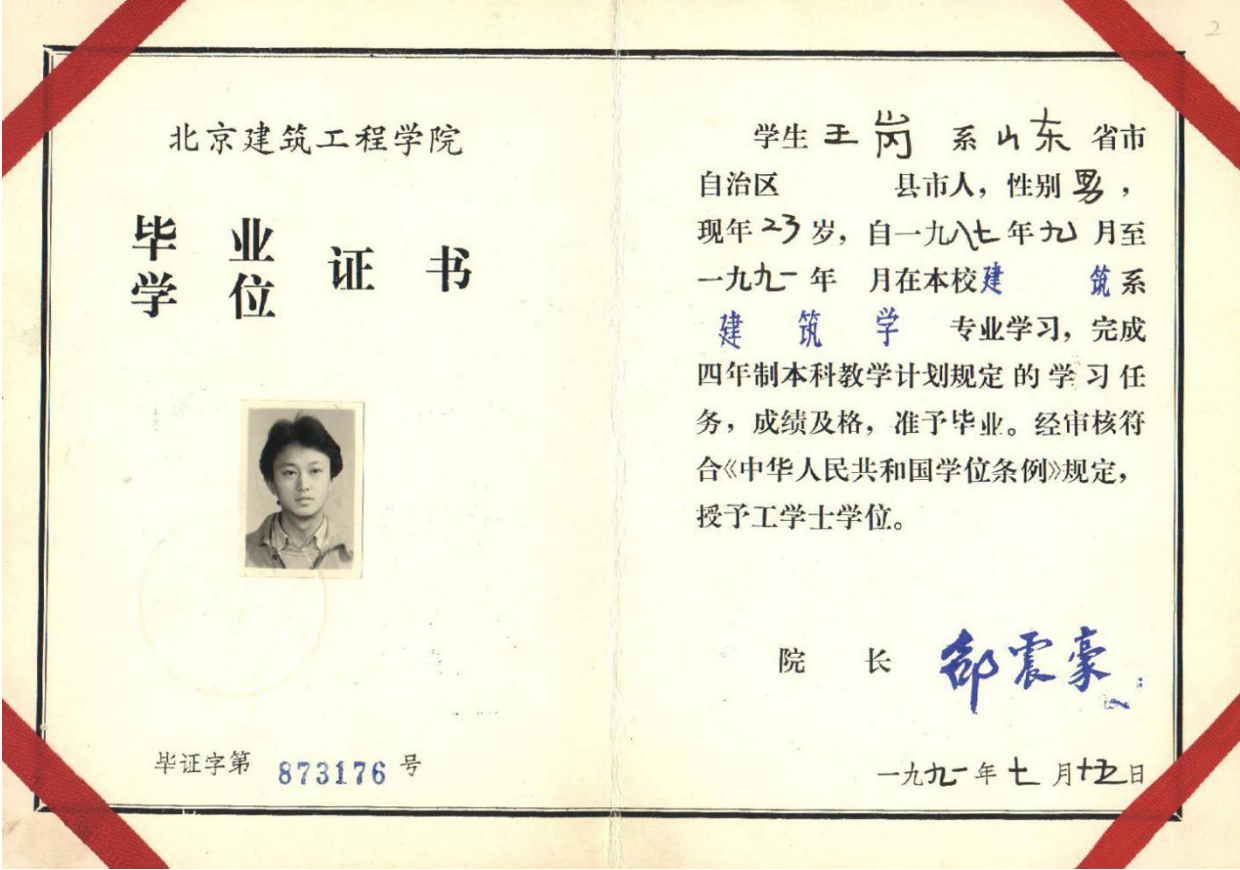 北京建筑工程学院
毕业
学位
证书
毕证字第 873176 号
学生 王岗 系 山东 省市
自治区 县市人，性别 男，
现年 23 岁，自一九八七年九月至
一九九一年 月在本校建筑系
建筑学 专业学习，完成
四年制本科教学计划规定的学习任
务，成绩及格，准予毕业。经审核符
合《中华人民共和国学位条例》规定，
授予工学士学位。
院长 邵震豪
一九九一年七月十五日
2